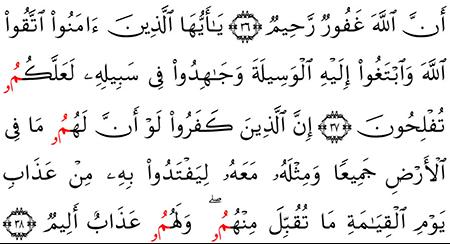 أَنَّ ٱللَّهَ غَفُورٌ رَّحِيمٌ ٣٦ يَٰٓأَيُّهَا ٱلَّذِينَ ءَامَنُوا۟ ٱتَّقُوا۟
ٱللَّهَ وَٱبْتَغُوٓا۟ إِلَيْهِ ٱلْوَسِيلَةَ وَجَٰهِدُوا۟ فِى سَبِيلِهِۦ لَعَلَّكُمُۥ
تُفْلِحُونَ ٣٧ إِنَّ ٱلَّذِينَ كَفَرُوا۟ لَوْ أَنَّ لَهُمُۥ مَا فِى
ٱلْأَرْضِ جَمِيعًا وَمِثْلَهُۥ مَعَهُۥ لِيَفْتَدُوا۟ بِهِۦ مِنْ عَذَابِ
يَوْمِ ٱلْقِيَٰمَةِ مَا تُقُبِّلَ مِنْهُمُۥۖ وَلَهُمُۥ عَذَابٌ أَلِيمٌ ٣٨